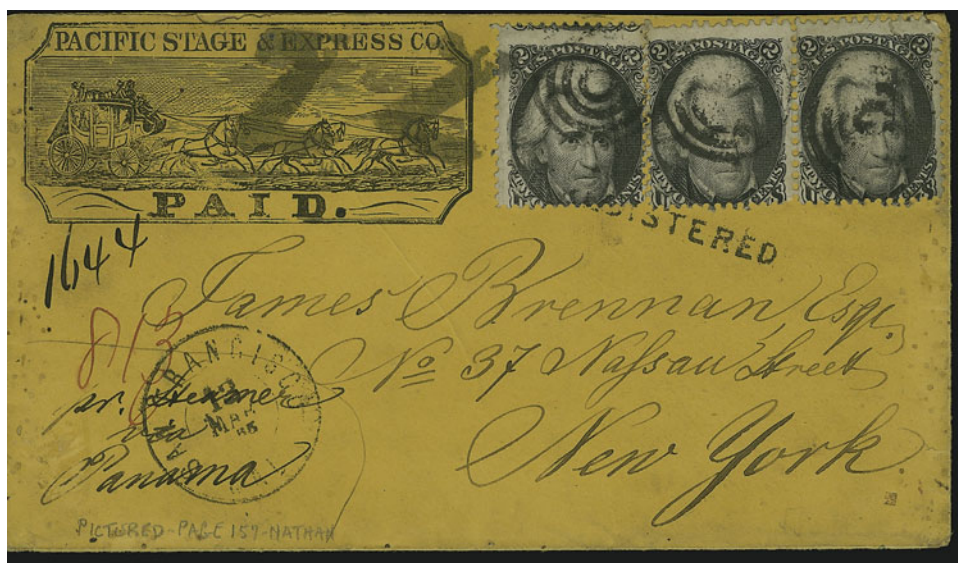 PACIFIC STAGE & EXPRESS CO.
PAID.
2 U.S. POSTAGE 2
2 U.S. POSTAGE 2
U.S. POSTAGE 2
REGISTERED
1644
James Brennan Esqr.
No 37 Nassau Street
New York.
813
SAN FRANCISCO
13
MAR
65
pr. Steamer
via
Panama
PICTURED-PAGE 157-NATHAN